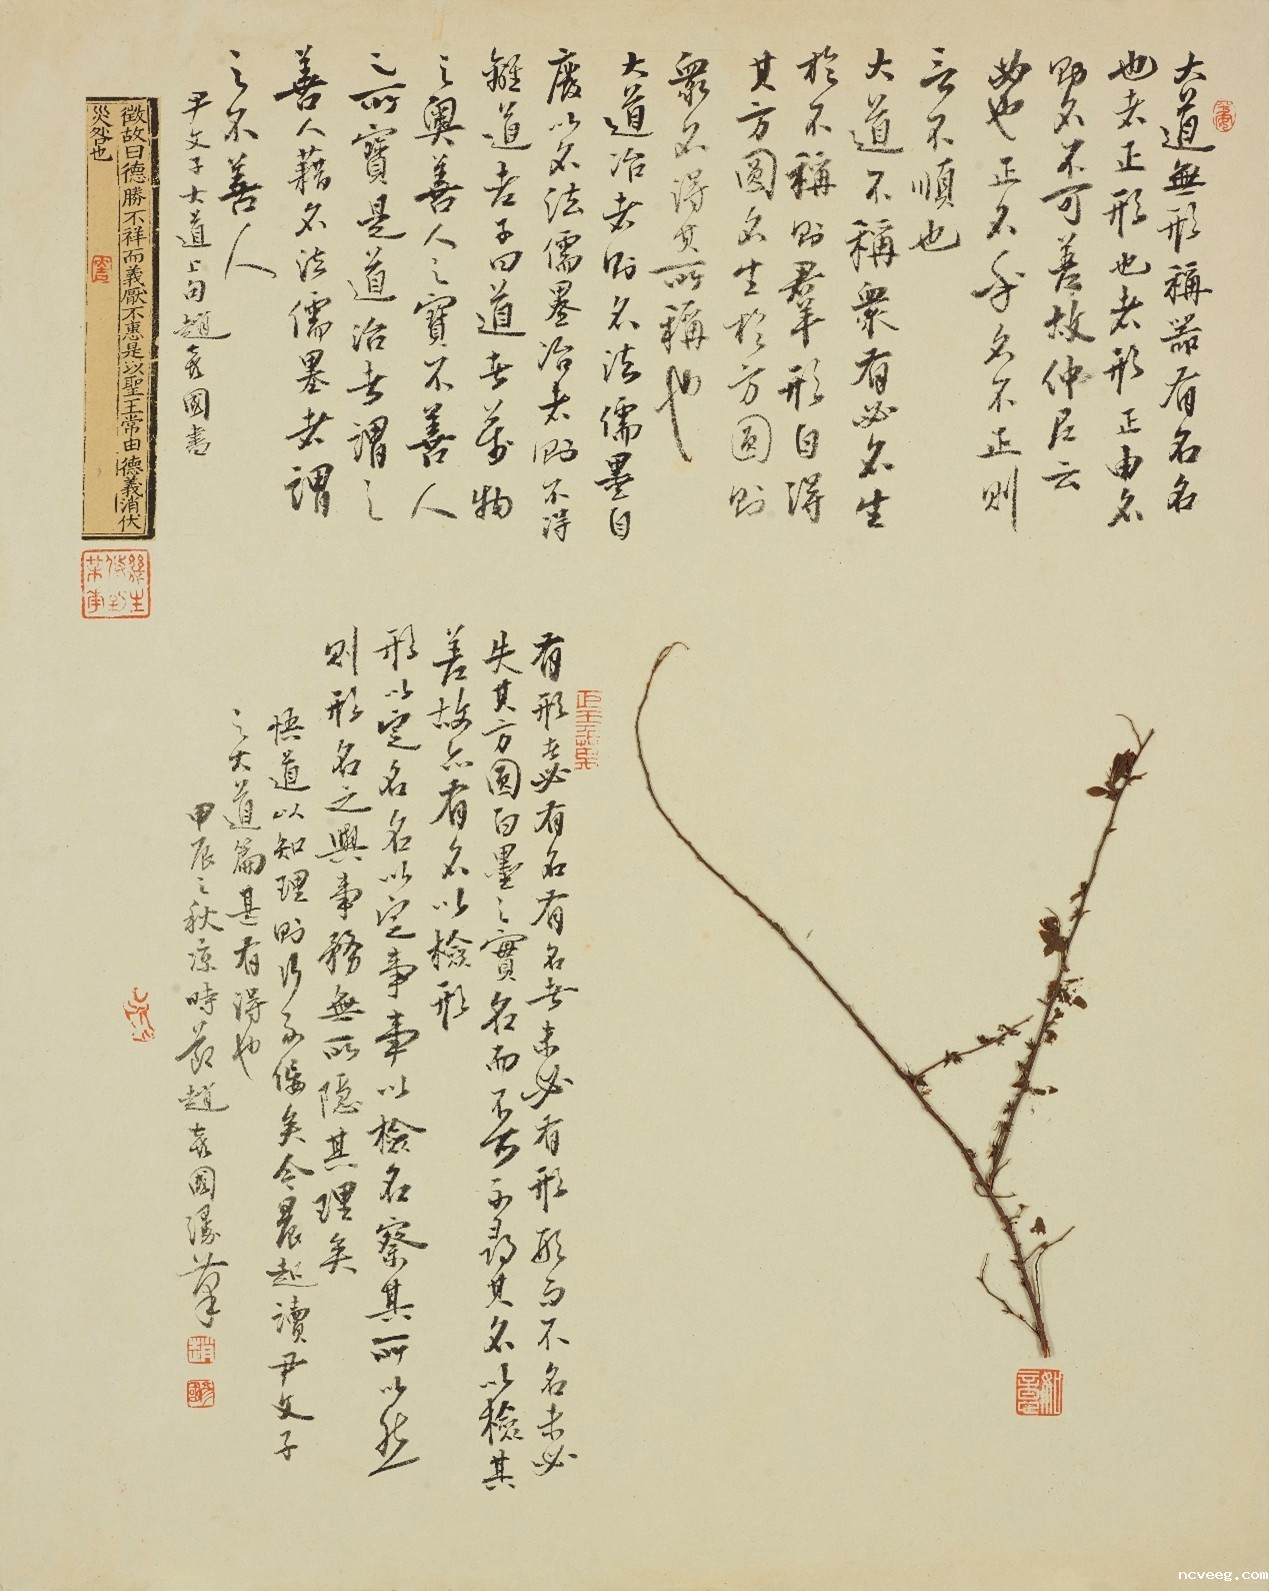 大道無形稱器有名名
也者正形也者形正由名
則名不可差故仲尼云
必也正名乎名不正則
言不順也
大道不稱眾有必名生
於不稱則羣形自得
其方圓名生於方圓則
眾名得其所稱也
大道治者則名法儒墨自
廢以名法儒墨治者則不得
離道老子曰道者萬物
之奧善人之寶不善人
之所寶是道治者謂之
善人藉名法儒墨者謂
之不善人
尹文子大道上句趙彥國書
徵故曰德勝不祥而義厭不惠是以聖王常由德義消伏
災咎也
有形者必有名有名者未必有形形而不名未必
失其方圓白墨之實名而不可不尋其名以檢其
差故亦有名以檢形
形以定名名以定事事以檢名察其所以然
則形名之與事務無所隱其理矣
悟道以知理則行不偏矣今晨起讀尹文子
之大道篇甚有得也
甲辰之秋涼時節趙彥國漫筆
ncveeg.com